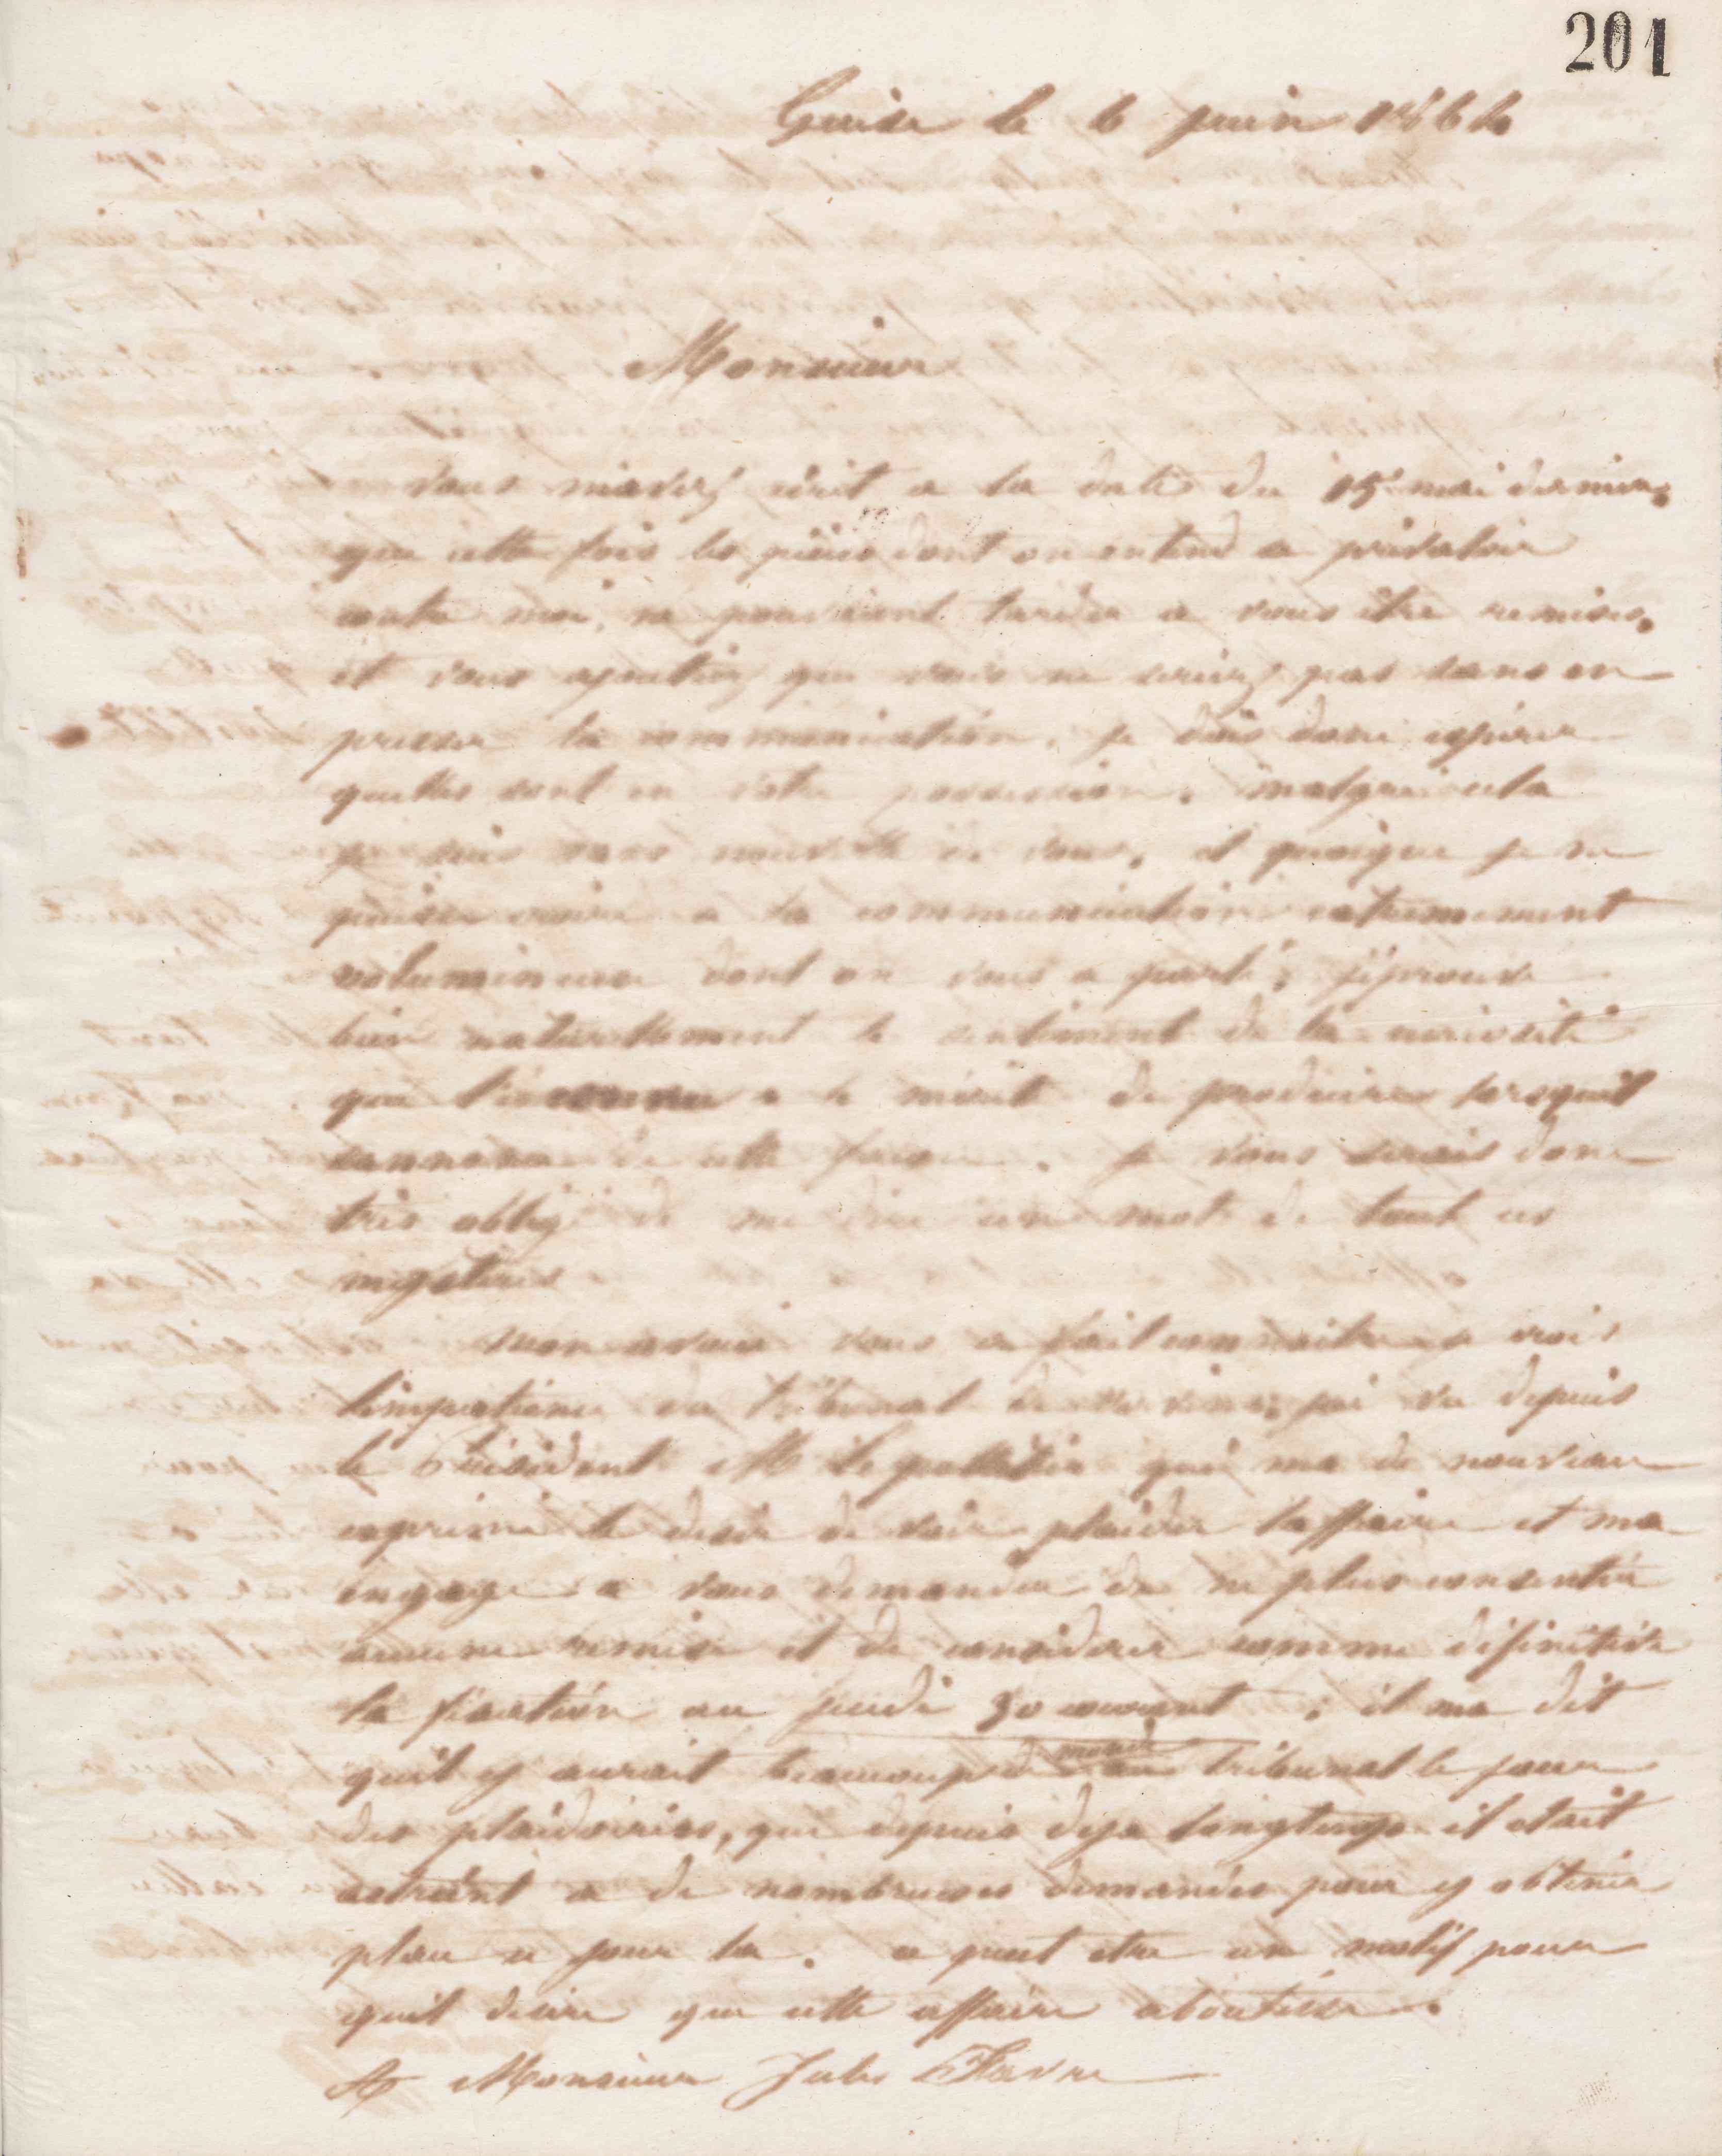 201
Guise le 6 juin 1864
Monsieur
Vous m'avez écrit a la date du 15 mai dernier,
que cette fois les pièces dont on entend se prévaloir
contre moi, ne pouvaient tarder a vous être remises,
et vous ajoutiez que vous ne seriez pas sans en
presser la communication, je dois donc espérer
quelles sont en votre possession, malgré cela
je suis sans nouvelle de vous, et quoique je ne
puisse croire a la communication extremement
volumineuse dont on vous a parlé, j'éprouve
bien naturellement le sentiment de la curiosité
que l'inconnu a le mérite de produire lorsquil
sannonce de cette façon. je vous serais donc
très obligé de me dire un mot de tout ces
mystères
Mon avoué vous a fait connaitre je crois
limpatience du tribunal de Vervins, jai vu depuis
le Président M Lepelletier qui ma de nouveau
exprimé le désir de voir plaider laffaire et ma
engagé a vous demander de ne plus consentir
aucune remise et de considerer comme définitive
la fixation au jeudi 30 courant ; il ma dit
quil y aurait beaucoup de monde au tribunal le jour
des plaidoiries, que depuis deja longtemps il etait
astreint a de nombreuses demandes pour y obtenir
place ce jour la. ce peut etre un motif pour
quil desire que cette affaire aboutisse.
A Monsieur Jules Favre